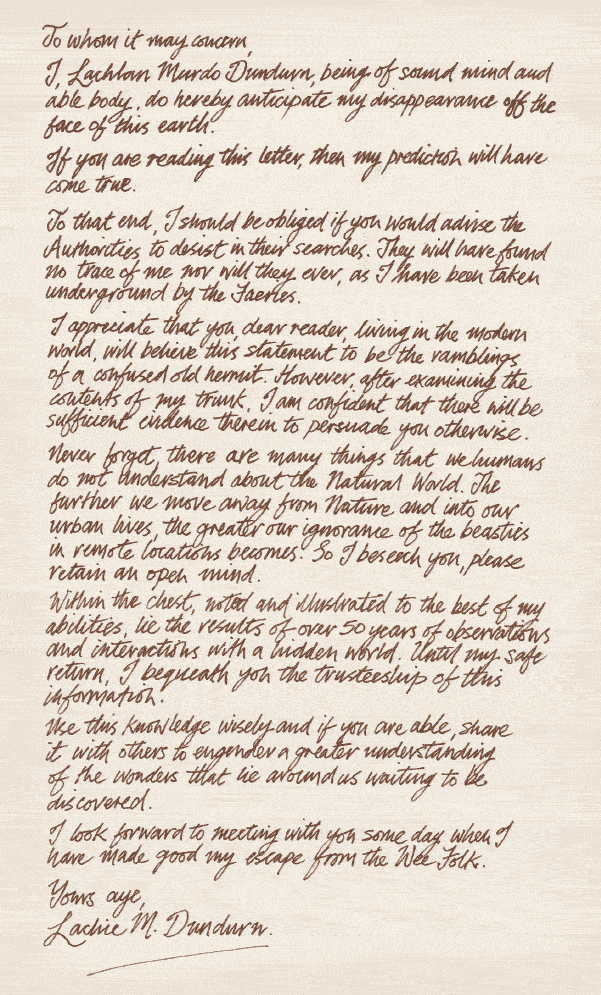 To whom it may concern,
I, Lachlan Murdo Dundurn, being of sound mind and
able body, do hereby anticipate my disappearance off the
face of this earth.
If you are reading this letter, then my prediction will have
come true.
To that end, I should be obliged if you would advise the
Authorities to desist in their searches. They will have found
no trace of me nor will they ever, as I have been taken
underground by the Faeries.
I appreciate that you, dear reader, living in the modern
world, will believe this statement to be the ramblings
of a confused old hermit. However, after examining the
contents of my trunk, I am confident that there will be
sufficient evidence therein to persuade you otherwise.
Never forget, there are many things that we humans
do not understand about the Natural World. The
further we move away from Nature and into our
urban lives, the greater our ignorance of the beasties
in remote locations becomes. So I beseech you, please
retain an open mind.
Within the chest, noted and illustrated to the best of my
abilities, lie the results of over 50 years of observations
and interactions with a hidden world. Until my safe
return, I bequeath you the trusteeship of this
information.
Use this knowledge wisely and if you are able, share
it with others to engender a greater understanding
of the wonders that lie around us waiting to be
discovered.
I look forward to meeting with you some day when I
have made good my escape from the Wee Folk.
Yours aye,
Lachie M. Dundurn.